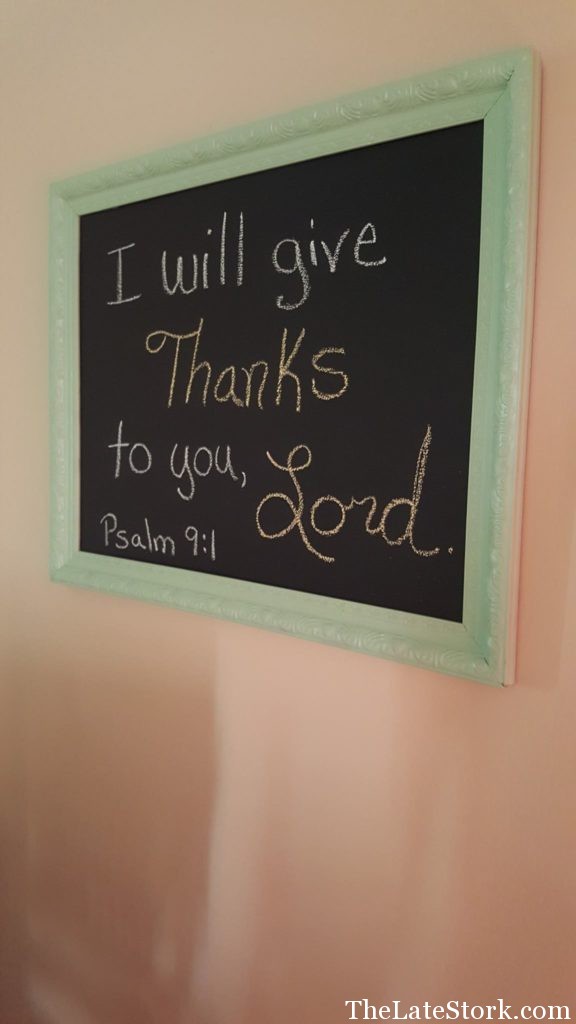 I will give
Thanks
to you, Lord.
Psalm 9:1
TheLateStork.com